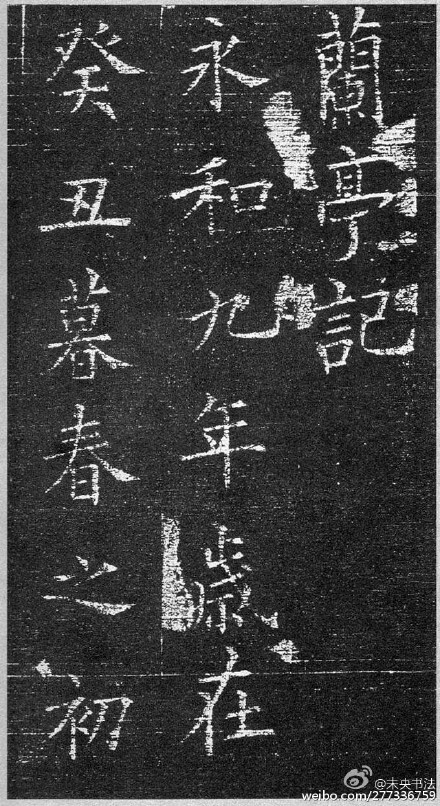 蘭亭記
永和九年歲在
癸丑暮春之初
@未央书法
weibo.com/277336759